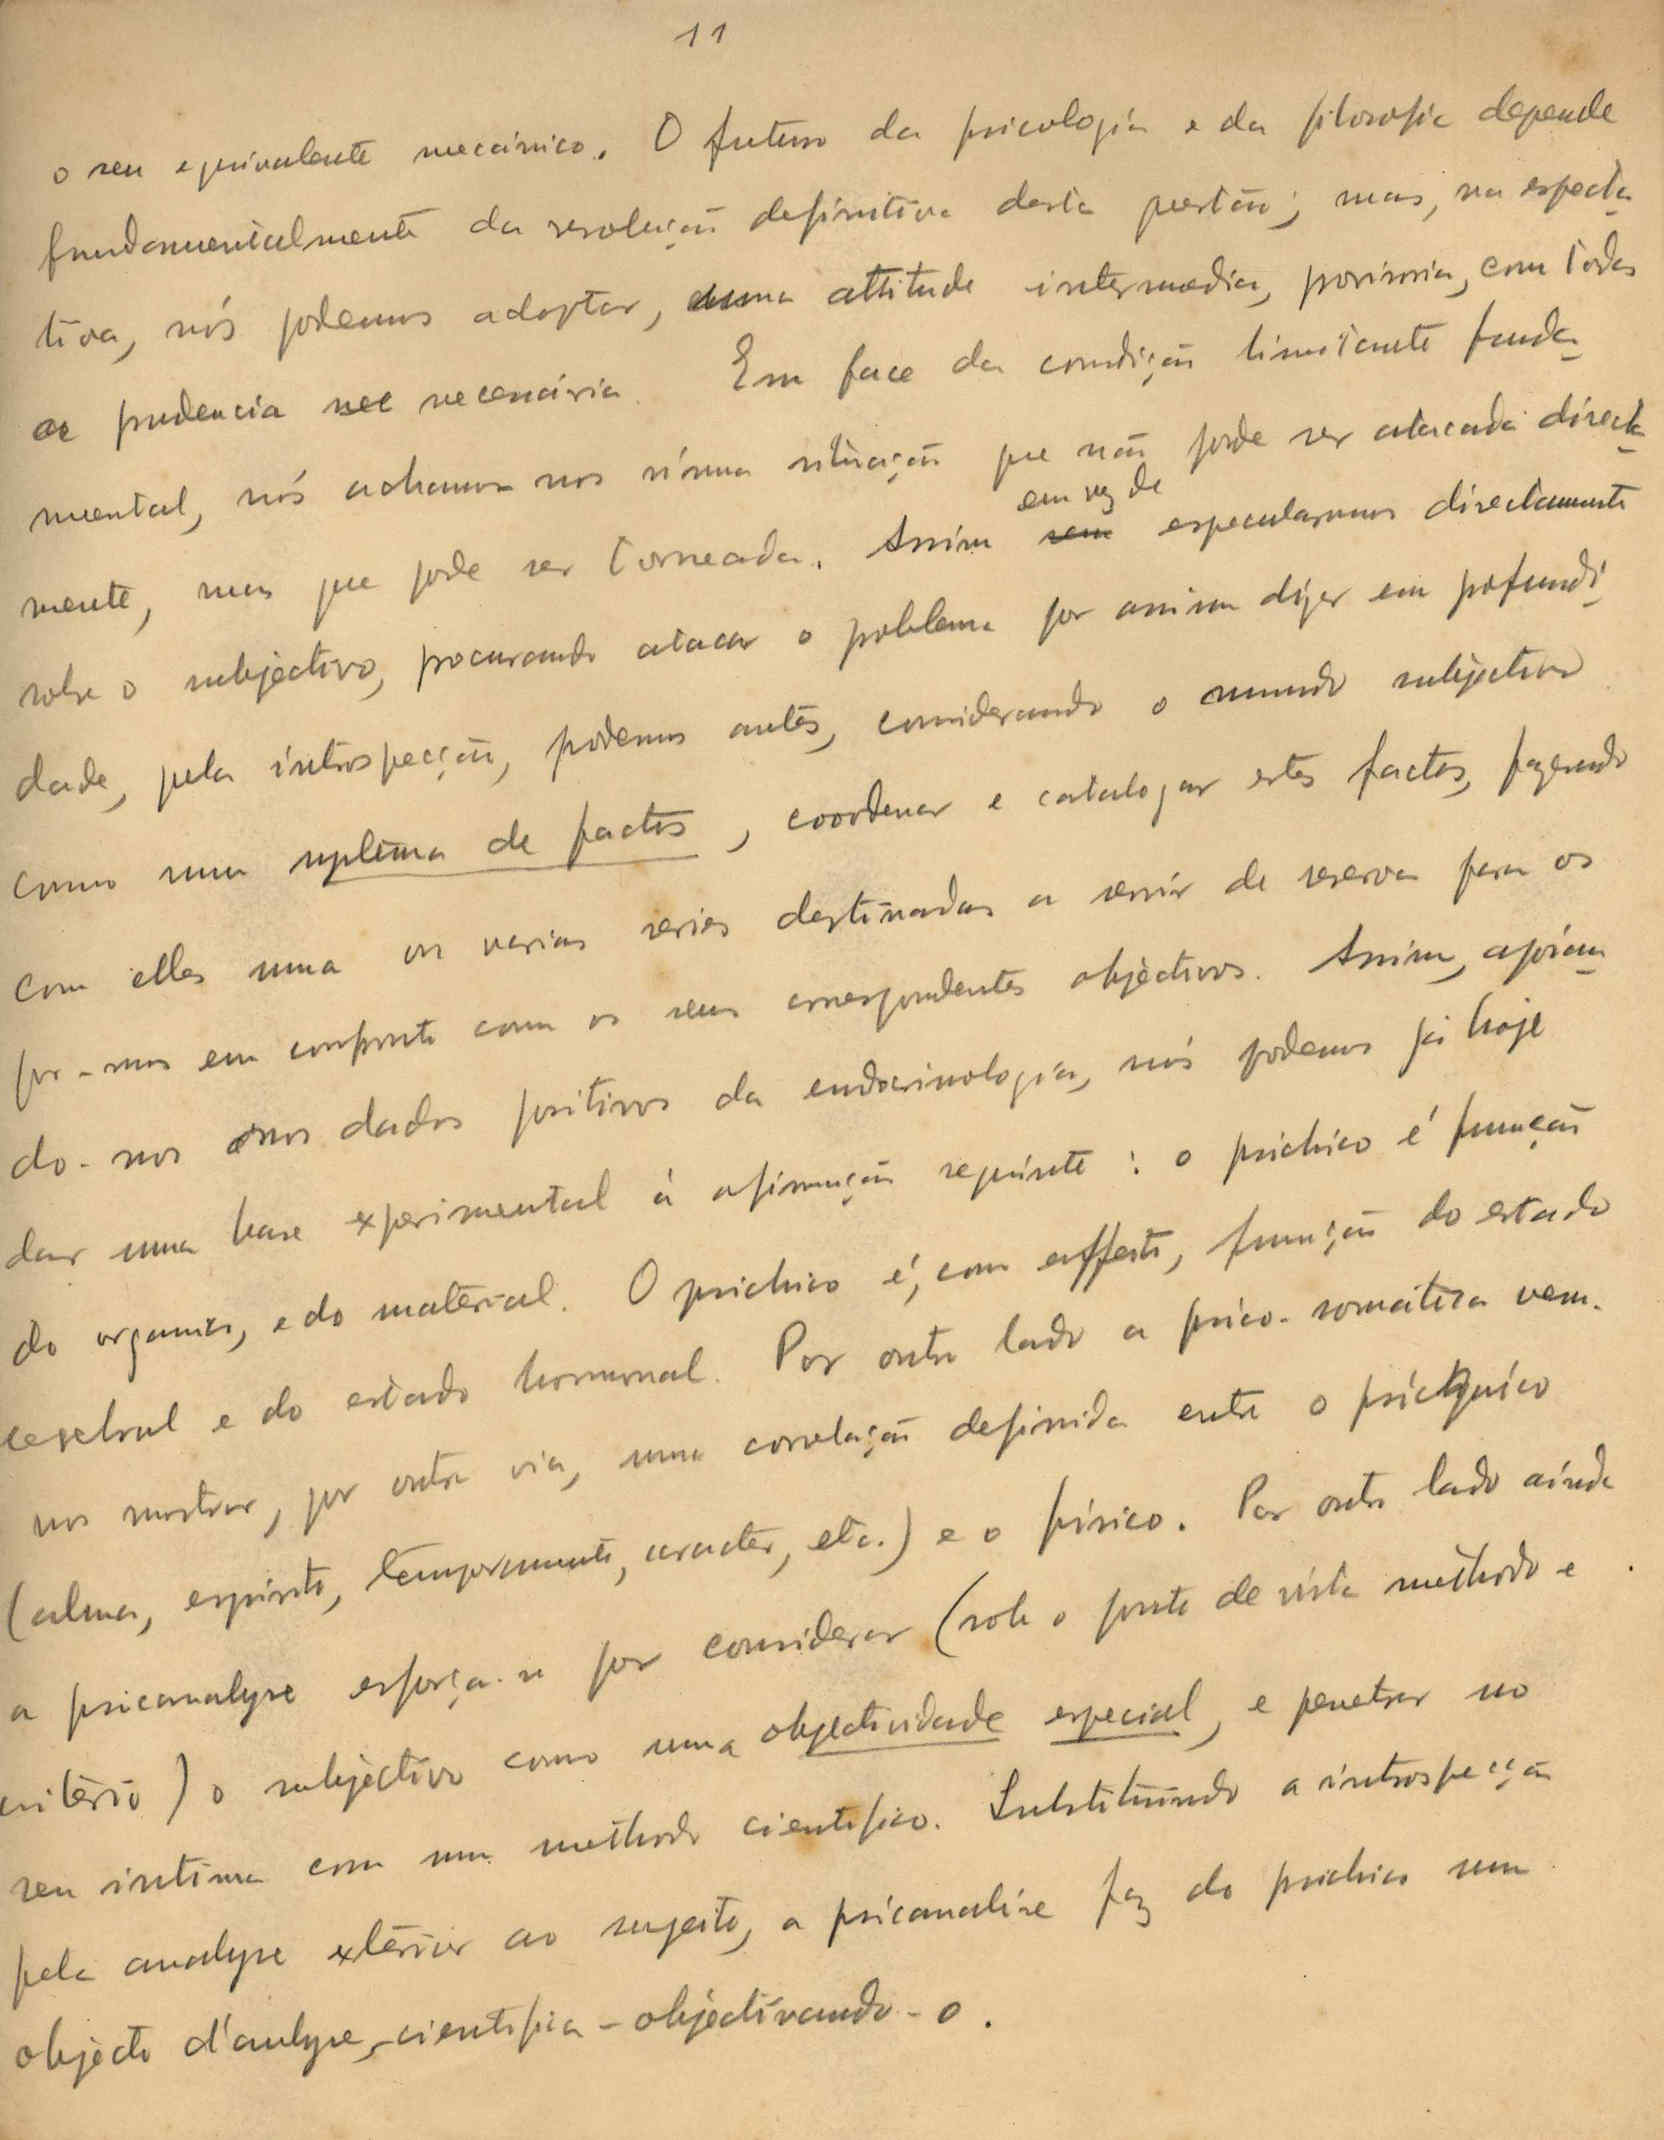 11
o seu equivalente mecánico. O futuro da psicologia e da filosofia depende
fundamentalmente da resolução definitiva desta questão; mas, na especta-
tiva, nós podemos adoptar, uma attitude intermedia, provisoria, com todas
as prudencia nec necessária. Em face da condição limitante funda-
mental, nós achamo-nos n'uma situação que não pode ser atacada directa-
mente, mas que pode ser torneada. Assim sem em vez de especularmos directamente
sobre o subjectivo, procurando atacar o problema por assim dizer em profundi-
dade, pela introspecção, podemos antes, considerando o mundo subjectivo
como um systema de factos, coordenar e catalogar estes factos, fazendo
com elles uma ou varias series destinadas a servir de reserva para os
por-mos em confronto com os seus correspondentes objectivos. Assim, apoian-
do-nos nos dados positivos da endocrinologia, nós podemos já hoje
dar uma base experimental á afirmação seguinte: o psichico é funcção
do organico, e do material. O psichico é, com effeito, funcção do estado
cerebral e do estado hormonal. Por outro lado a psico-somatica vem-
nos mostrar, por outra via, uma correlação definida entre o psichico
(alma, espirito, temperamento, caracter, etc.) e o fisico. Por outro lado ainda
a psicanalyse esforça-se por considerar (sob o ponto de vista methodo e
critério) o subjectivo como uma objectividade especial, e penetrar no
seu intimo com um methodo cientifico. Substituindo a introspecção
pela analyse exterior ao sugeito, a psicanalise faz do psichico um
objecto d'anlyse, cientifica - objectivando-o.